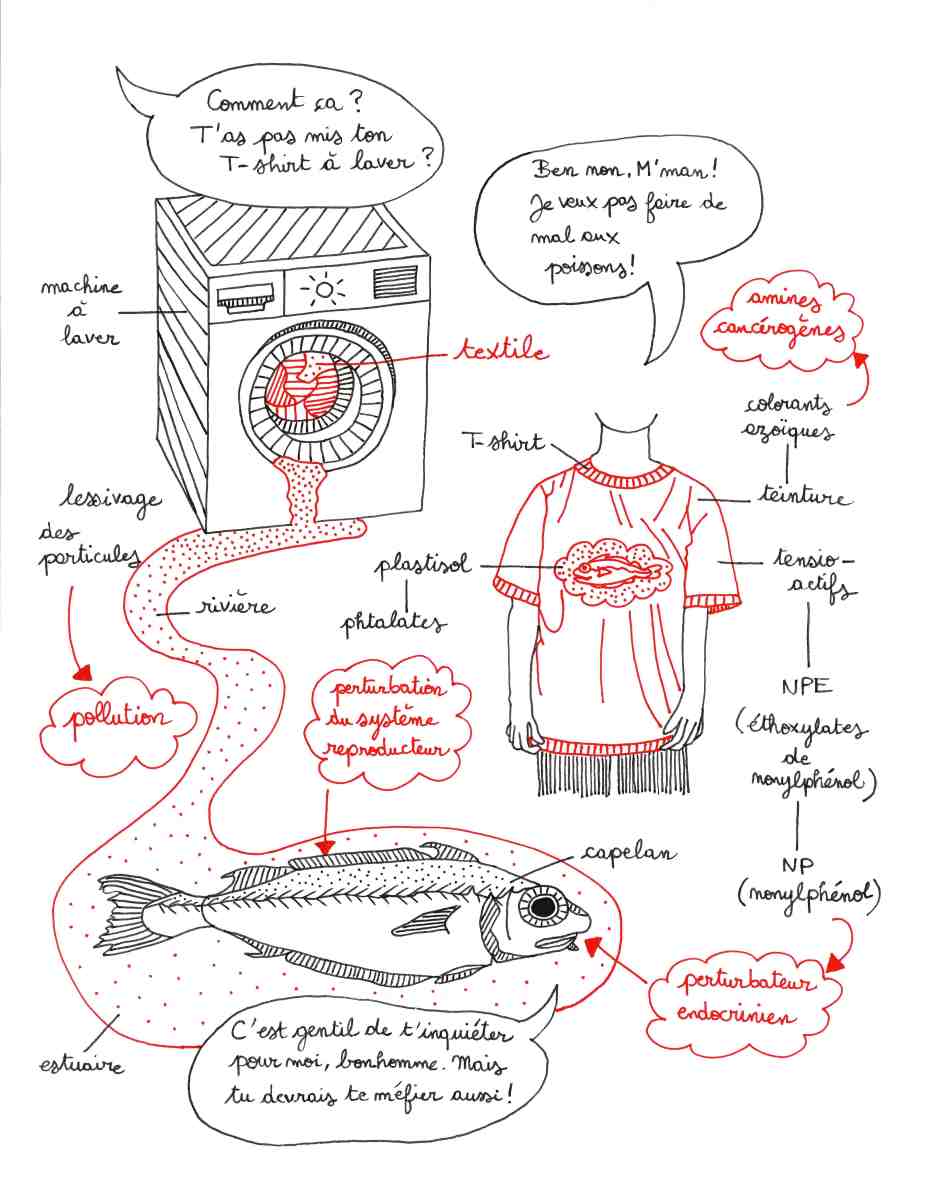 Comment ça ?
T'as pas mis ton
T-shirt à laver ?
Ben non, M'man !
Je veux pas faire de
mal aux
poissons !
machine
à
laver
textile
amines
cancérogènes
colorants
azoïques
T-shirt
teinture
lessivage
des
particules
plastisol
tensio-
actifs
rivière
phtalates
pollution
perturbation
du système
reproducteur
NPE
(éthoxylates
de
nonylphénol)
capelan
NP
(nonylphénol)
perturbateur
endocrinien
estuaire
C'est gentil de t'inquiéter
pour moi, bonhomme. Mais
tu devrais te méfier aussi !